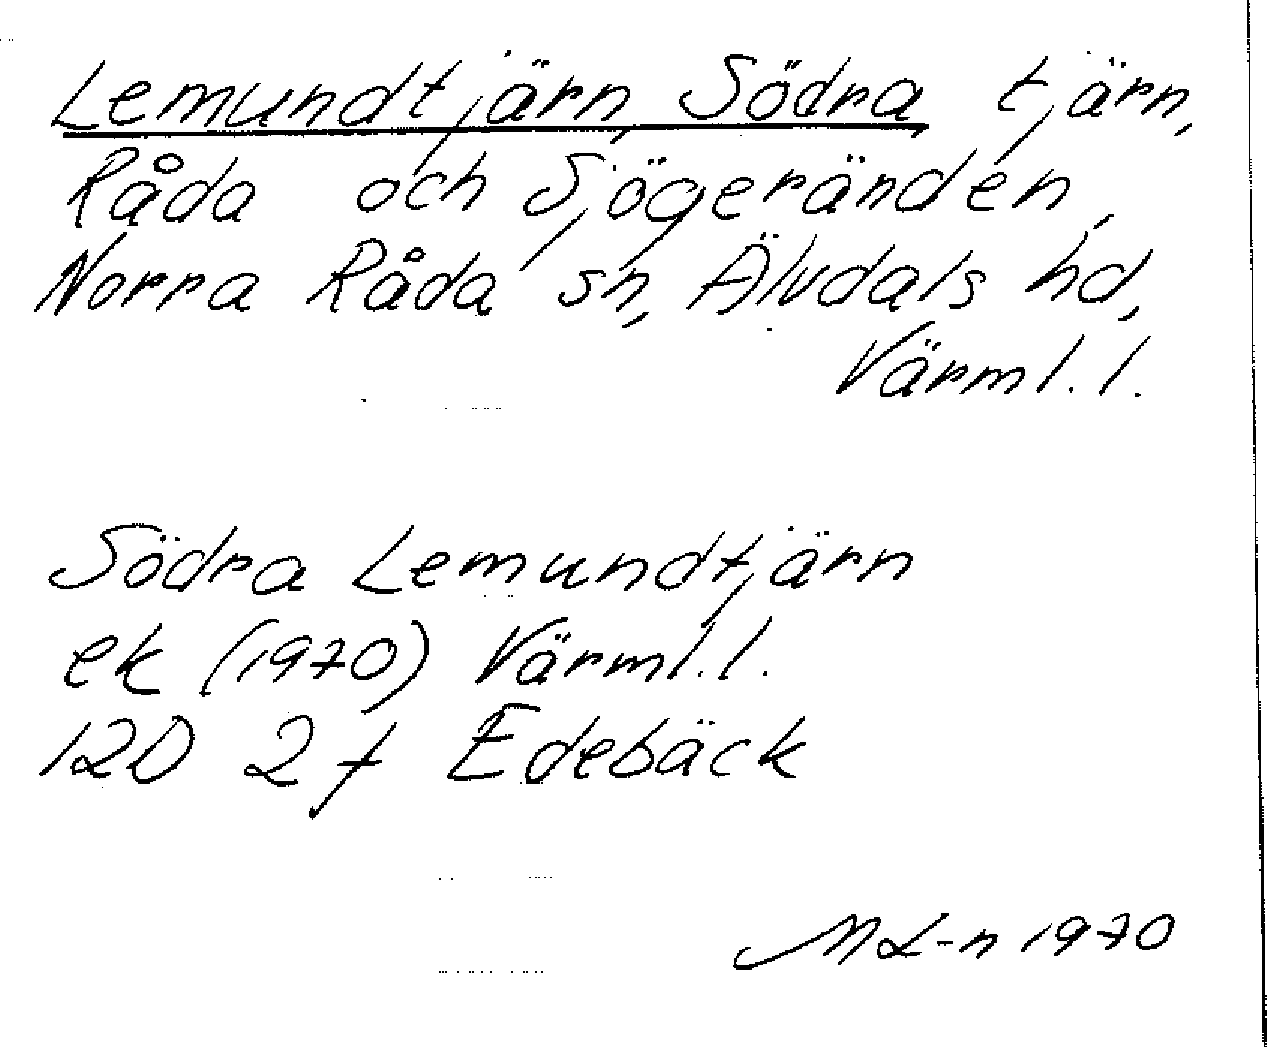 Lemundtjärn, Södra, tjärn,
Råda och Sjögeränden,
Norra Råda sn, Älvdals hd,
Värml. l.
Södra Lemundtjärn
ek (1970) Värml. l.
12D 2f Edebäck
ML-n 1970